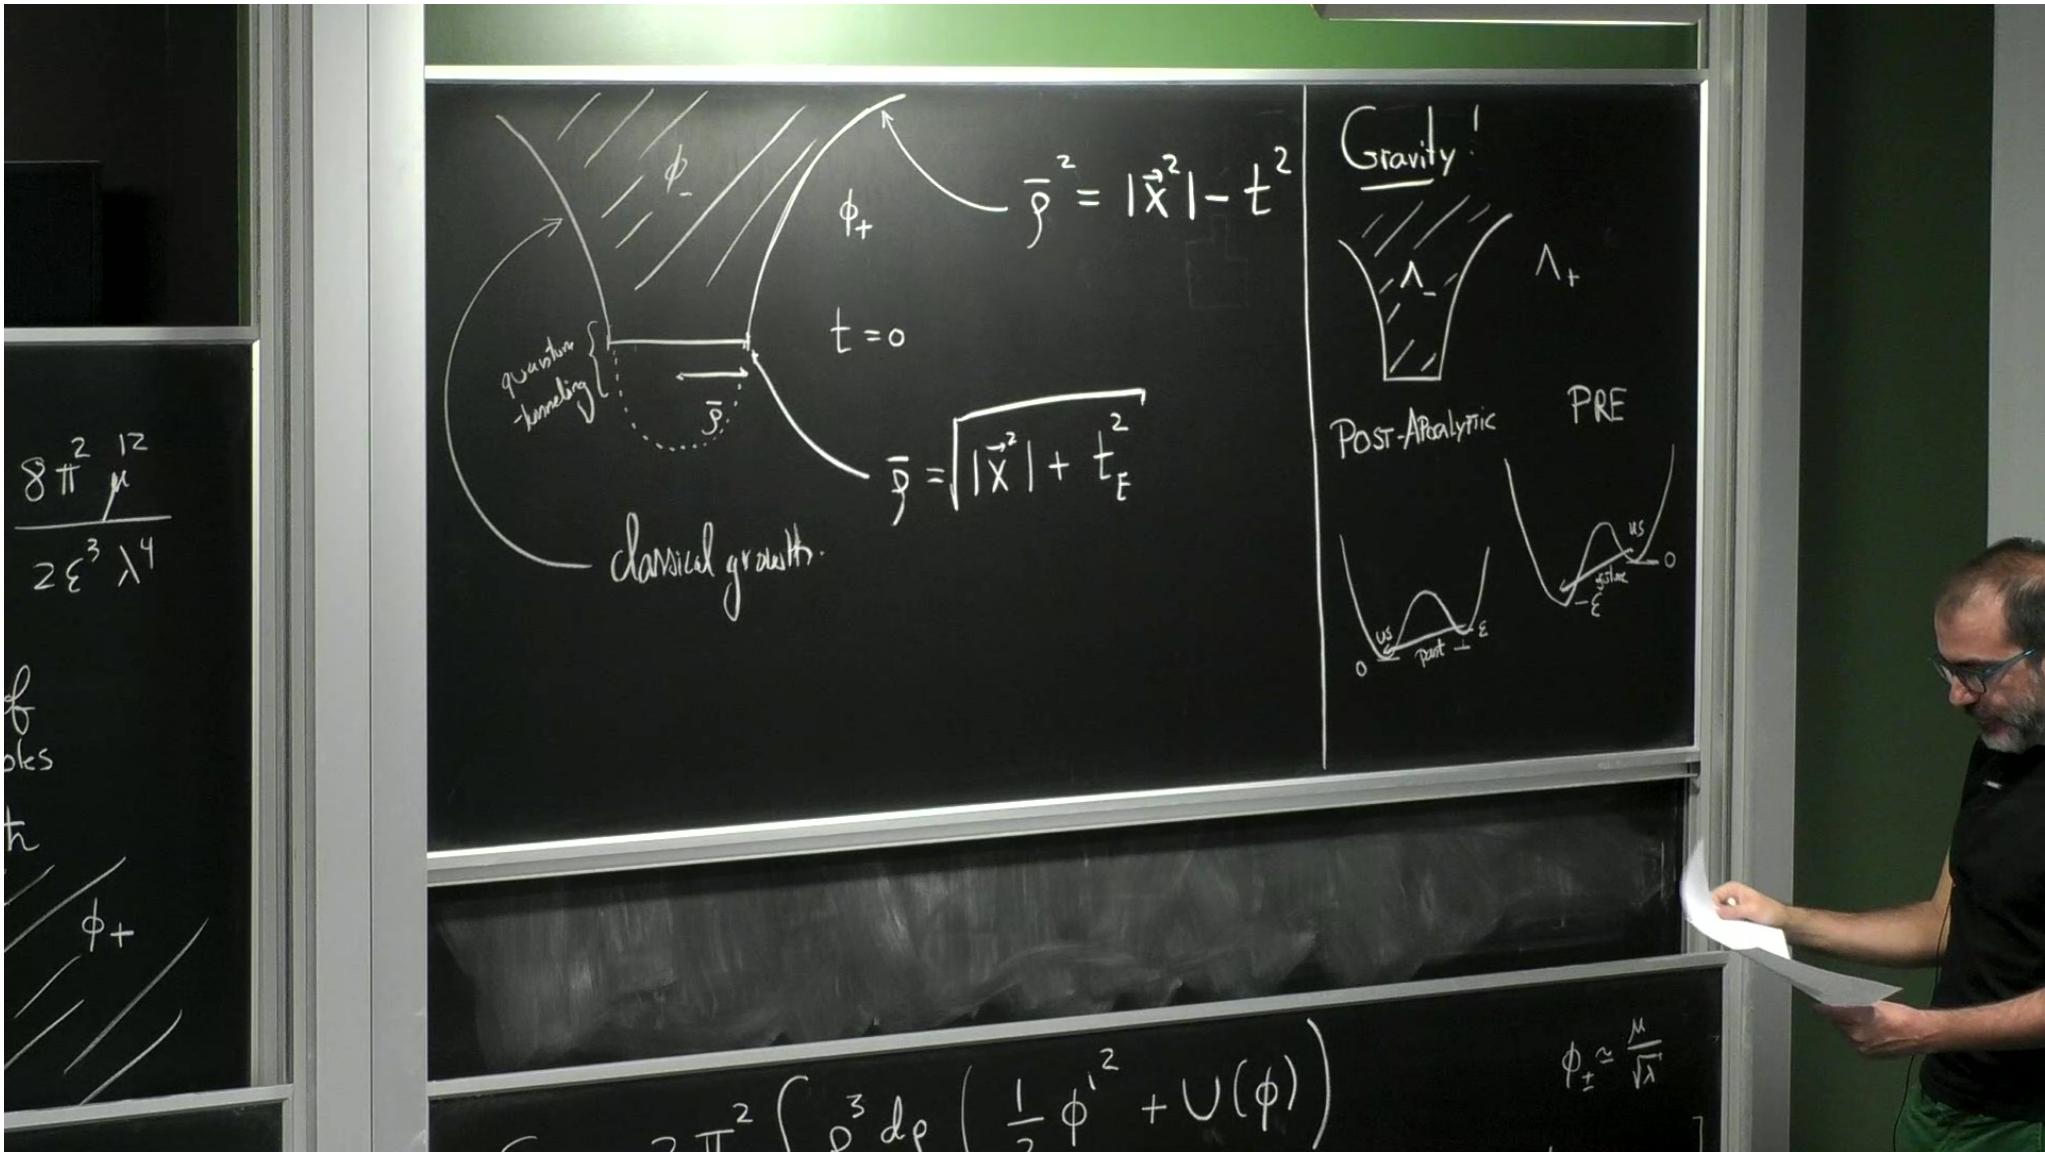 8π² μ¹²
2ε³ λ⁴
of
oles
th
ϕ₊
ϕ₋
ϕ₊
ρ̄² = |x⃗²| − t²
t = 0
quantum
tunneling
ρ̄
ρ̄ = √(|x⃗²| + t_E²)
classical growth.
Gravity!
Λ₋
Λ₊
POST-APOCALYPTIC
PRE
us
0
past
ε
us
0
future
−ε
2π² ∫ ρ³ dρ ( 1/2 ϕ'² + U(ϕ) )
ϕ± ≃ μ/√λ